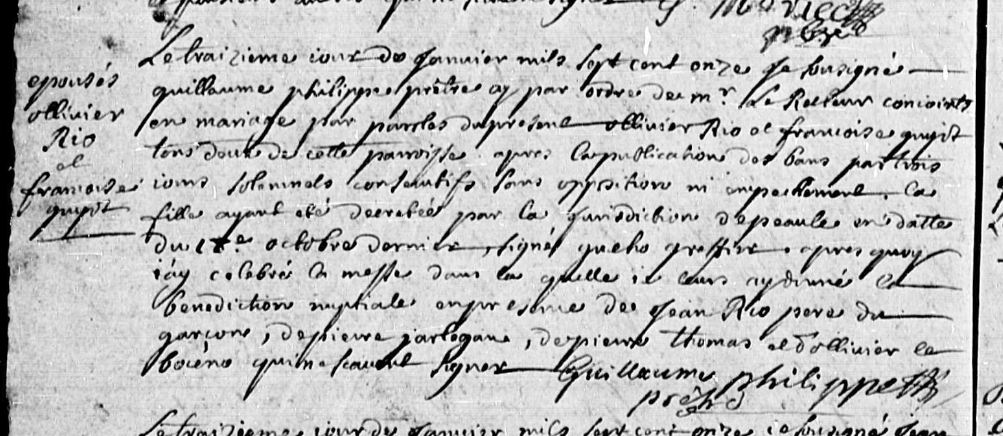 epousés
ollivier
Rio
et
francoise
guyot
Le traizieme iour de Janvier mils sept cent onze Je sousigné
guillaume philippe prêtre ay par ordre de mr. Le Recteur conioints
en mariage par paroles du present ollivier Rio et francoise guyot
tous deux de cette parroisse apres la publication des bans par trois
iours solemnels consecutifs sans opposition ni empechement. la
fille ayant eté decretée par la jurisdiction de peaule en datte
du octobre dernier, signé queho greffier. apres quoy
i'ay celebré la messe dans la quelle ie leurs ay donné la
benediction nuptiale en presence de Jean Rio pere du
garçon, de pierre, de pierre thomas et d'ollivier le
boceno qui ne scavent signer Guillaume philippe
prêtre
Le traizieme iour de Janvier mils sept cent onze ie sousigné Jean